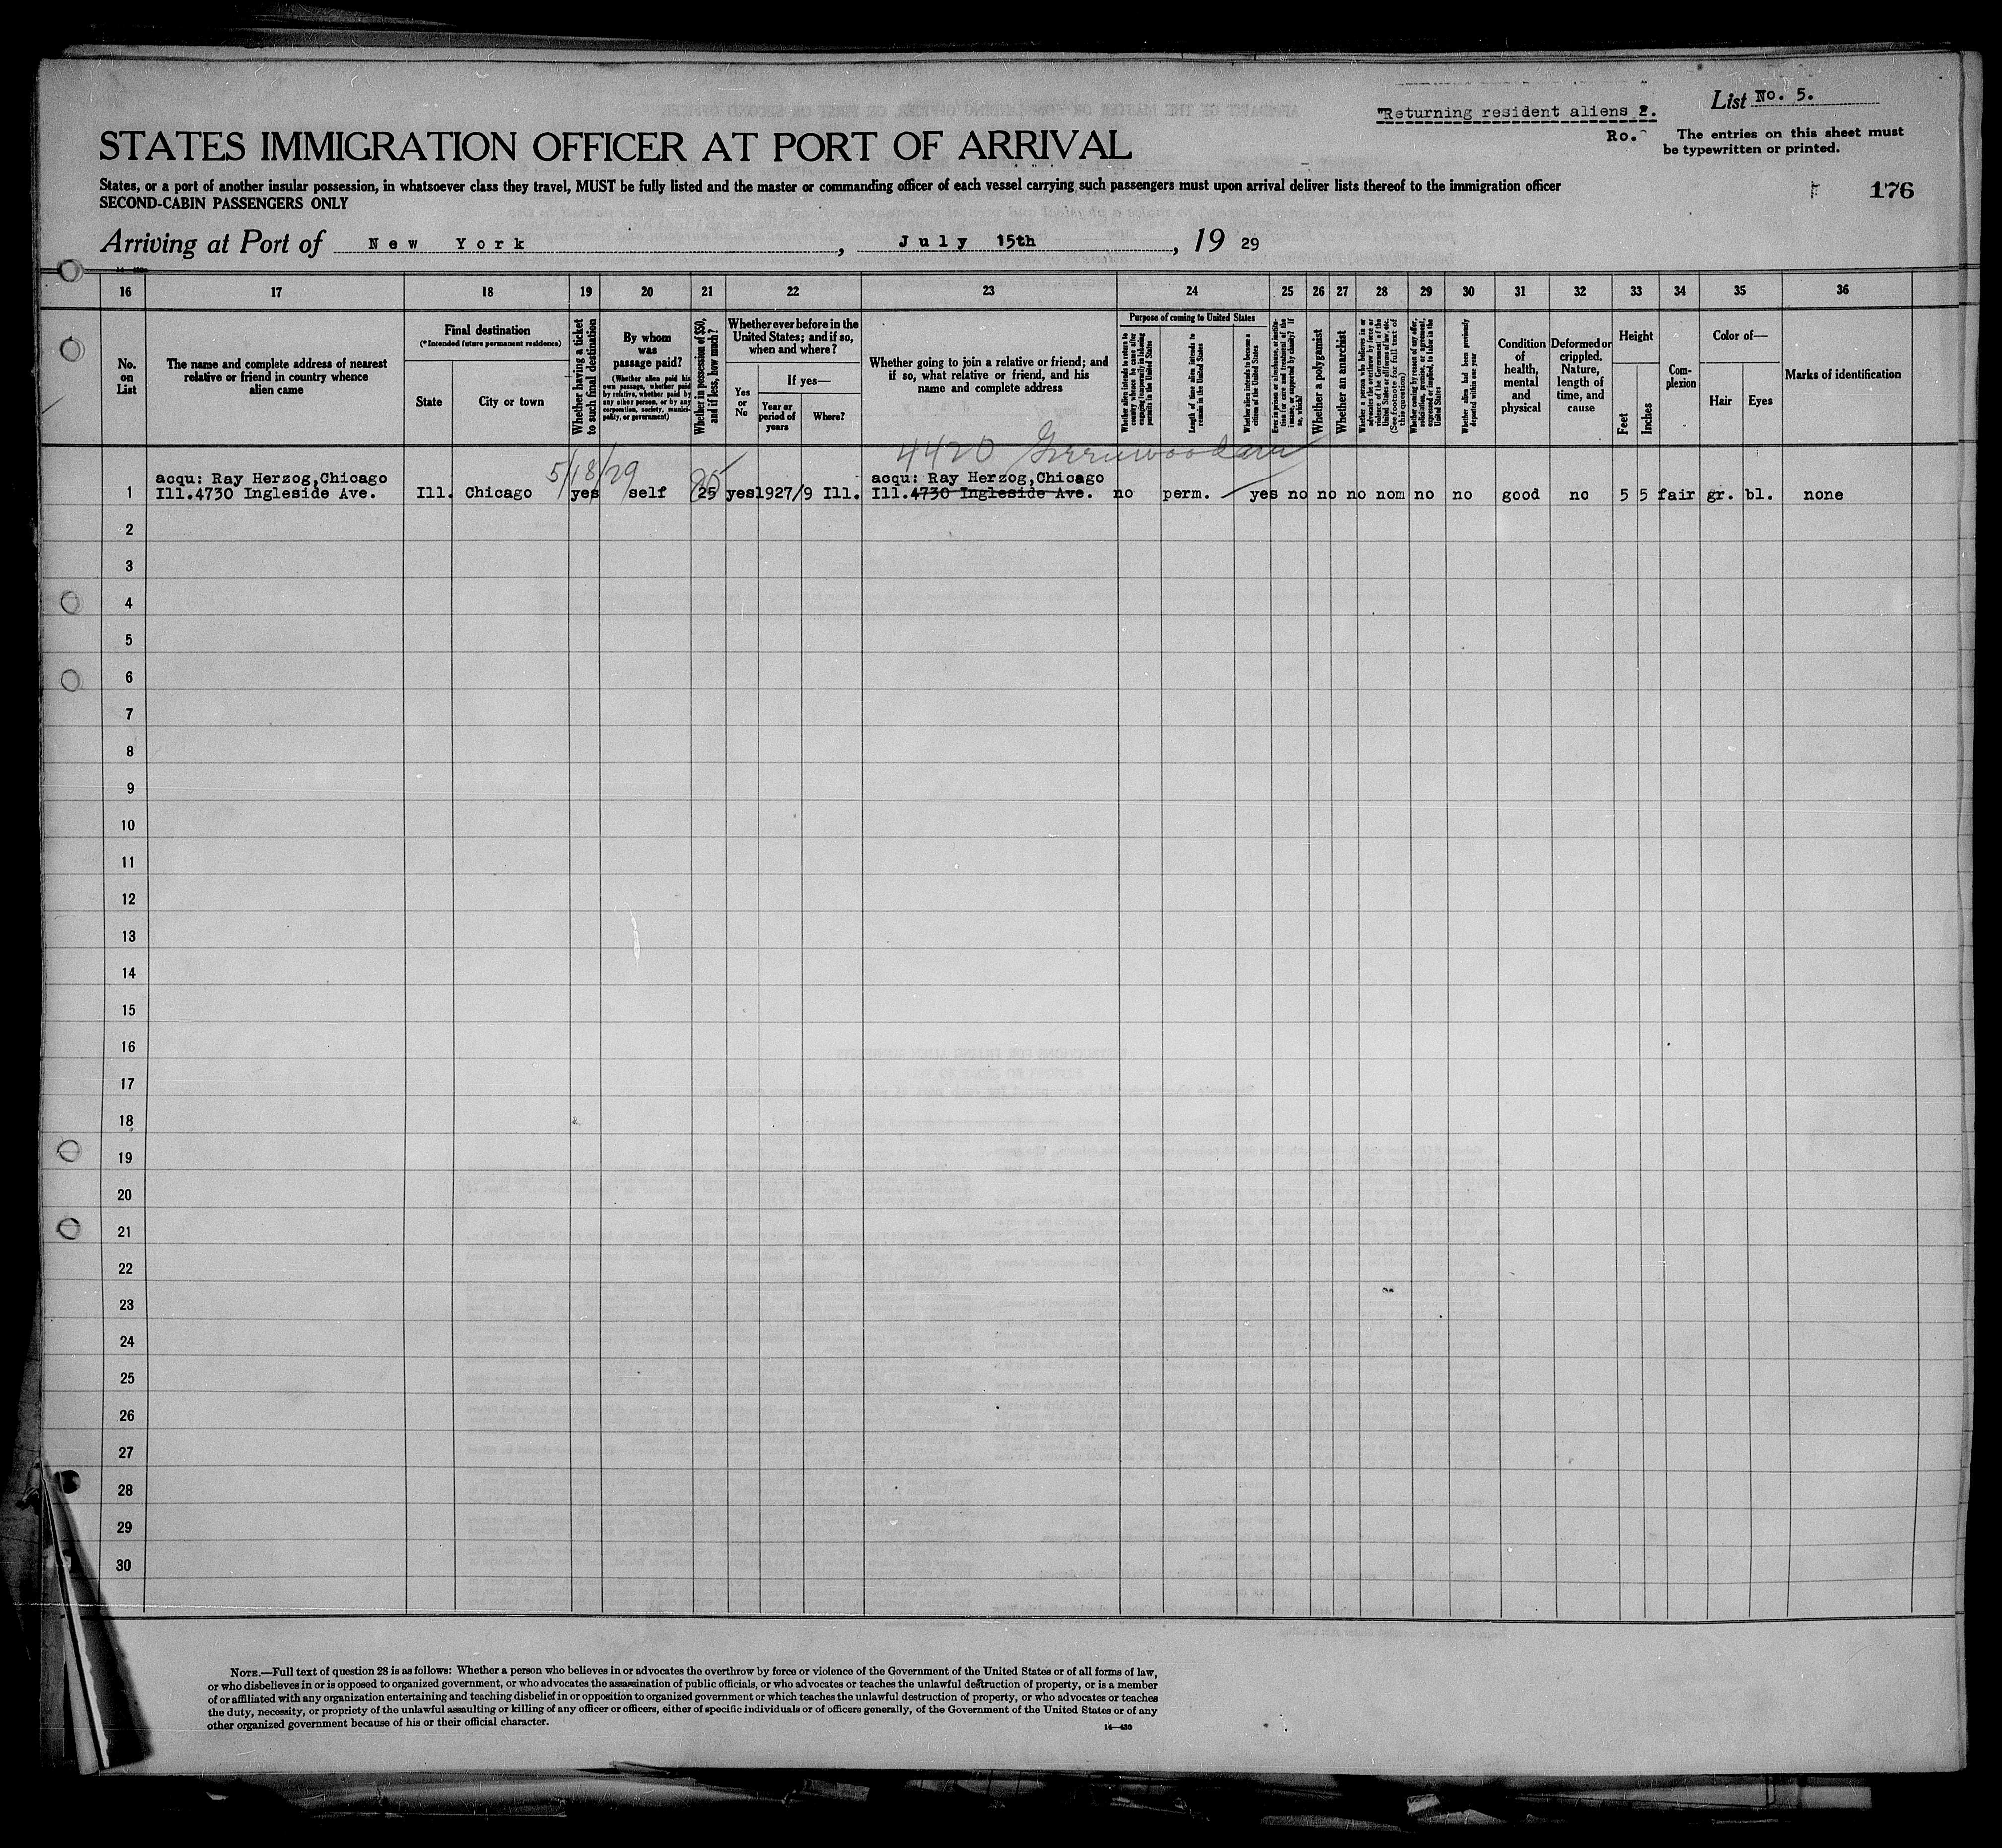 "Returning resident aliens 2.
List No. 5.
Ro.
The entries on this sheet must
be typewritten or printed.
STATES IMMIGRATION OFFICER AT PORT OF ARRIVAL
States, or a port of another insular possession, in whatsoever class they travel, MUST be fully listed and the master or commanding officer of each vessel carrying such passengers must upon arrival deliver lists thereof to the immigration officer
SECOND-CABIN PASSENGERS ONLY
176
Arriving at Port of New York, July 15th, 19 29
16 17 18 19 20 21 22 23 24 25 26 27 28 29 30 31 32 33 34 35 36
No.
on
List
The name and complete address of nearest
relative or friend in country whence
alien came
Final destination
(*Intended future permanent residence)
State
City or town
Whether having a ticket
to such final destination
By whom
was
passage paid?
(Whether alien paid his
own passage, whether paid
by relative, whether paid by
any other person, or by any
corporation, society, munici-
pality, or government)
Whether in possession of $50,
and if less, how much?
Whether ever before in the
United States; and if so,
when and where?
Yes
or
No
If yes—
Year or
period of
years
Where?
Whether going to join a relative or friend; and
if so, what relative or friend, and his
name and complete address
Purpose of coming to United States
Whether alien intends to return to
country whence he came after
engaging temporarily in laboring
pursuits in the United States
Length of time alien intends to
remain in the United States
Whether alien intends to become a
citizen of the United States
Whether a polygamist
Whether an anarchist
Whether alien had been previously
deported within one year
Condition
of
health,
mental
and
physical
Deformed or
crippled.
Nature,
length of
time, and
cause
Height
Feet
Inches
Com-
plexion
Color of—
Hair
Eyes
Marks of identification
4420 Greenwood ave
5/18/29
acqu: Ray Herzog,Chicago
acqu: Ray Herzog,Chicago
1 Ill.4730 Ingleside Ave. Ill. Chicago yes self 25 yes 1927/9 Ill. Ill.4730 Ingleside Ave. no perm. yes no no no nom no no good no 5 5 fair gr. bl. none
2
3
4
5
6
7
8
9
10
11
12
13
14
15
16
17
18
19
20
21
22
23
24
25
26
27
28
29
30
NOTE.—Full text of question 28 is as follows: Whether a person who believes in or advocates the overthrow by force or violence of the Government of the United States or of all forms of law,
or who disbelieves in or is opposed to organized government, or who advocates the assassination of public officials, or who advocates or teaches the unlawful destruction of property, or is a member
of or affiliated with any organization entertaining and teaching disbelief in or opposition to organized government or which teaches the unlawful destruction of property, or who advocates or teaches
the duty, necessity, or propriety of the unlawful assaulting or killing of any officer or officers, either of specific individuals or of officers generally, of the Government of the United States or of any
other organized government because of his or their official character.
14—430